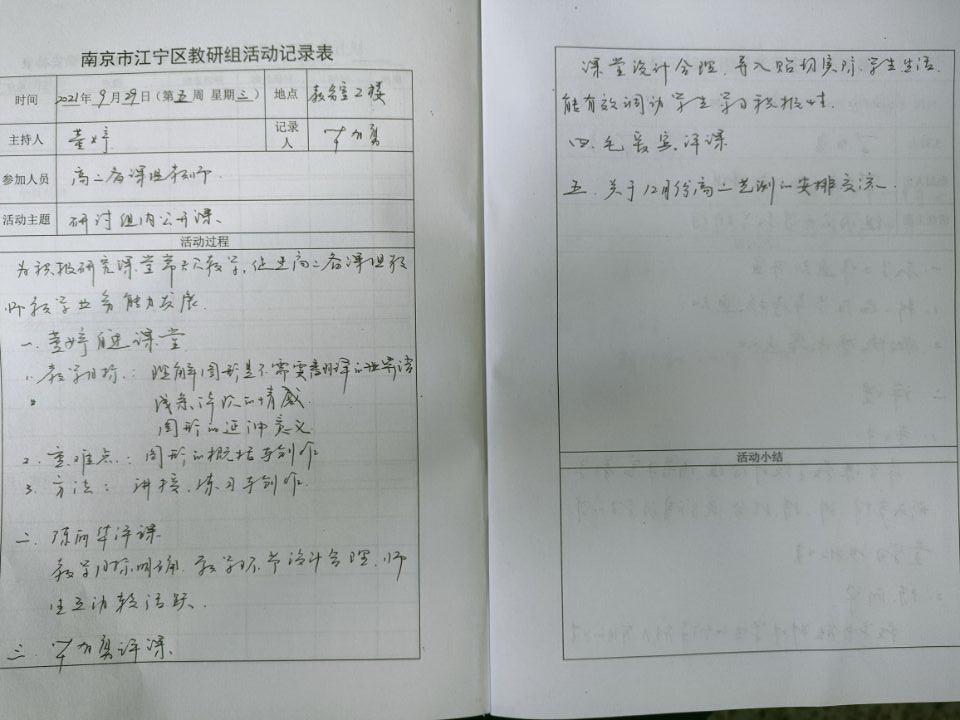 南京市江宁区教研组活动记录表
时间 2021年9月29日(第五周 星期三) 地点 教学室2楼
主持人 董婷 记录人
参加人员 高二备课组教师
活动主题 研讨组内公开课、
活动过程
为积极研究课堂常态教学,促进高二备课组教
师教学业务能力发展.
一.董婷 课堂
1.教学目标: 理解图形是不需要翻译的世界语
线条 的情感
图形的延伸意义
2.重.难点: 图形的概括与创作
3.方法: 讲授、练习与创作.
二.陈 华评课
教学目标明确.教学环节设计合理.师
生互动较活跃.
三. 评课.
课堂设计合理.导入贴切实际.学生生活,
能有效调动学生学习积极性.
四.毛 评课
五.关于12月份高二艺测的安排交流.
活动小结